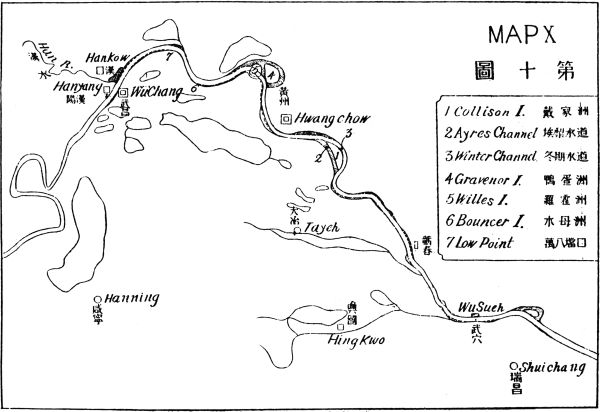 MAP X
第十圖
1 Collison I. 戴家洲
2 Ayres Channel 水道
3 Winter Channel 冬期水道
4 Gravenor I. 鴨蛋洲
5 Willes I. 洲
6 Bouncer I. 水母洲
7 Low Point
Han R.
漢水
Hankow
漢口
Hanyang
漢陽
WuChang
武昌
7
5
4
6
黃州
Hwangchow
3
2
1
大冶
Tayeh
蘄春
Hanning
咸寧
興國
HingKwo
WuSueh
武穴
Shuichang
瑞昌